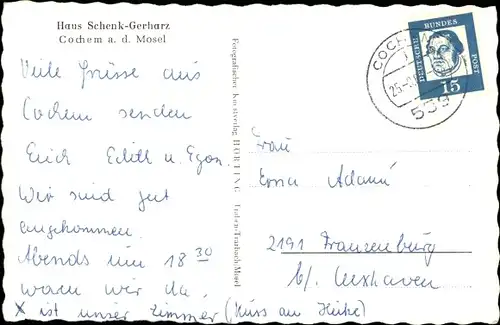 Haus Schenk-Gerharz
Cochem a. d. Mosel
Viele Grüsse aus
Cochem senden
Erich Edith u. Egon.
Wir sind gut
angekommen.
Abends um 18 30
waren wir da.
X ist unser Zimmer (Kuss an Heike)
Fotografischer Kunstverlag HORTING Traben-Trarbach/Mosel
DEUTSCHE BUNDES POST
15
COCHEM
539
Frau
Erna Adamú
2191 Franzenburg
b/ Cuxhaven